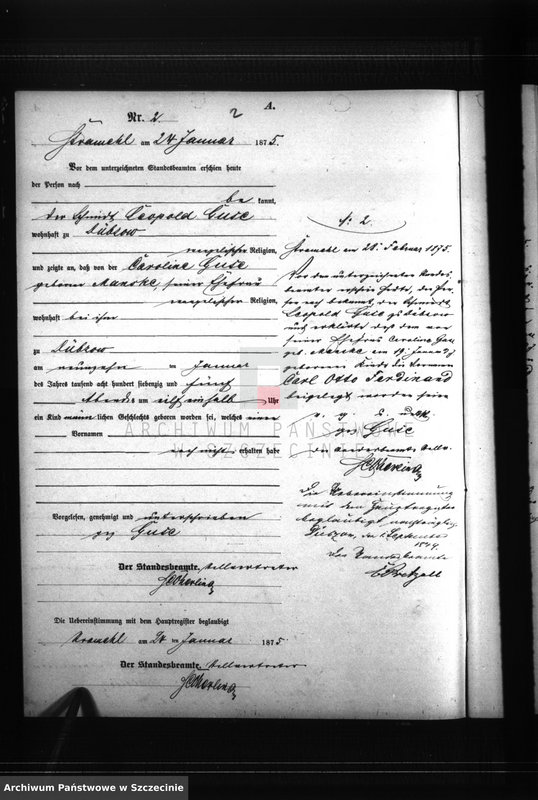 A.
Nr. 2.
2
Stramehl am 24 Januar 1875.
Vor dem unterzeichneten Standesbeamten erschien heute
der Person nach
be kannt,
der Schmidt Leopold Guse
wohnhaft zu Dübsow
evangelischer Religion,
und zeigte an, daß von der Caroline Guse
geborne Manske, seiner Ehefrau
evangelischer Religion,
wohnhaft bei ihm
zu Dübzow
am neunzehn ten Januar
des Jahres tausend acht hundert siebenzig und fünf
Abends um eilf ein halb Uhr
ein Kind männlichen Geschlechts geboren worden sei, welches einen
Vornamen
noch nicht erhalten habe
Vorgelesen, genehmigt und unterschrieben
gz Guse
Der Standesbeamte. Stellvertreter
Die Uebereinstimmung mit dem Hauptregister beglaubigt
Stramehl am 24 ten Januar 1875
Der Standesbeamte. Stellvertreter
N: 2
Stramehl am 28. Februar 1875.
Vor dem unterzeichneten Standes
beamten erschien heute, der Per
son nach bekannt, der Schmidt
Leopold Guse zu Dübzow
und erklärte daß dem von
seiner Ehefrau Caroline Guse
geb. Manske am 19. Januar
geborenen Kinde die Vornamen
Carl Otto Ferdinand
beigelegt worden seien
v. g. u.
gez Guse
der Standesbeamte Stellv.
Die Uebereinstimmung
mit dem Hauptregister
beglaubigt
September
Der Standesbeamte
ARCHIWUM PAŃSTWOWE
W SZCZECINIE
Archiwum Państwowe w Szczecinie